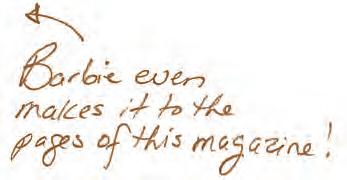 Barbie even
makes it to the
pages of this magazine!